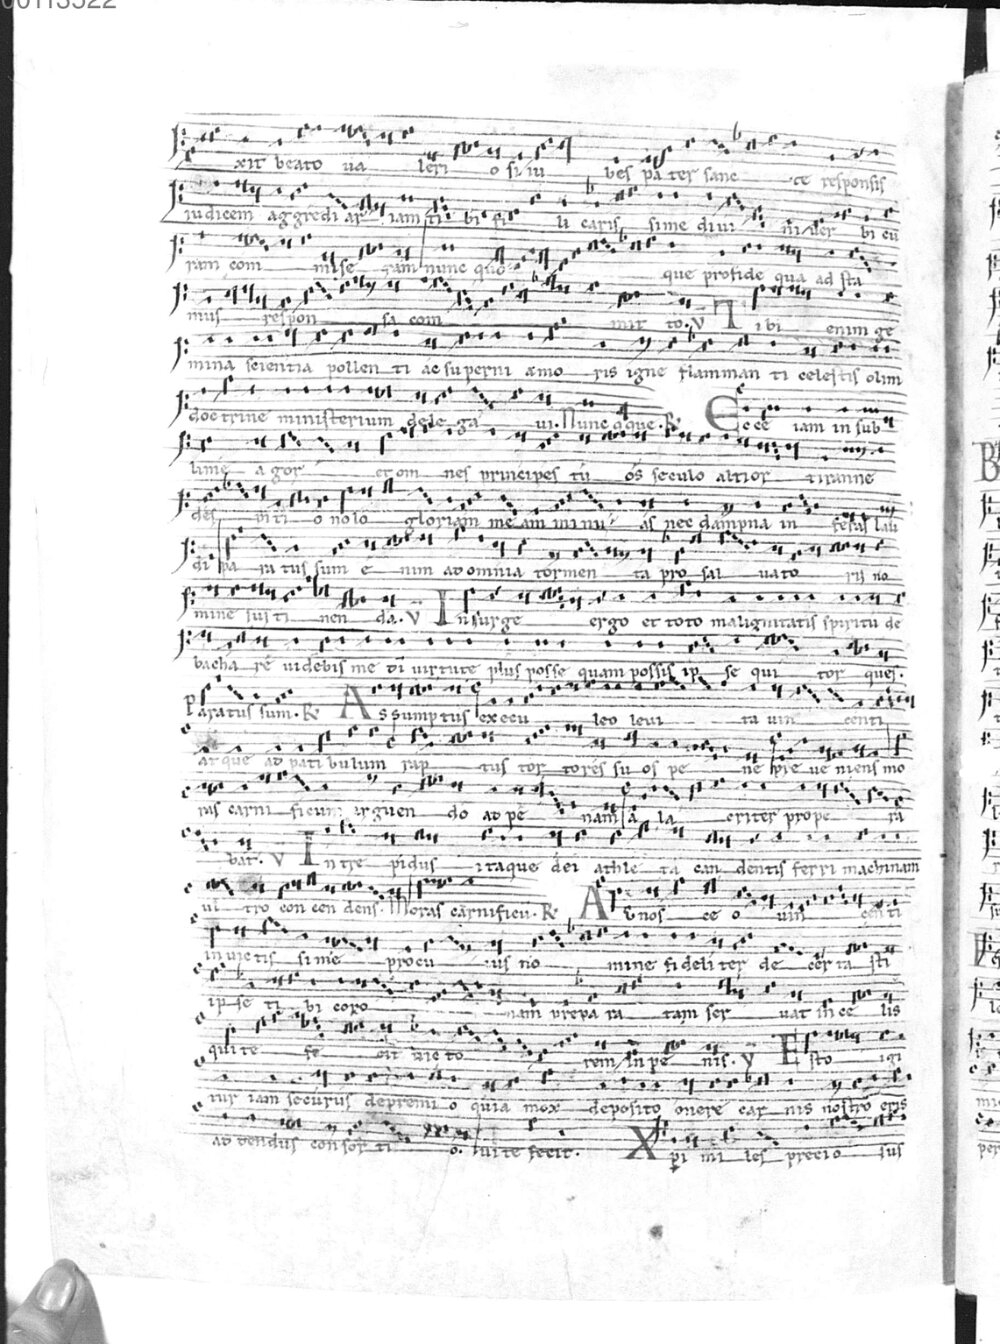 00113522
xit beato va leri o si iu bes pa ter sanc te responsis
iudicem aggredi ar iam ti bi fi li caris sime divi ni ver bi cu
ram com mise ram nunc quo que pro fide qua ad sta
mus respon sa com mit to. V Tibi enim ge
mina scientia pollen ti ac superni amo ris igne flamman ti celestis olim
doctrine ministerium dele ga vi. Nunc qque. R Ecce iam in sub
lime a gor et om nes principes tu os seculo altior tiranne
des pi ti o nolo gloriam meam minu as nec dampna in feras lau
di pa ra tus sum e nim ad omnia tormen ta pro sal vato ris no
mine susti nen da. V Insurge ergo et toto malignitatis spiritu de
bacha re videbis me di virtute plus posse quam possis ip se qui tor ques.
Paratus sum. R Assumptus execu leo levi ta vin centi
atque ad pati bulum rap tus tor tores su os pe ne pre ve niens mo
ras carni ficum arguen do ad pe nam a la criter prope ra
bat. V Intre pidus itaque dei athle ta can dentis ferri machinam
ul tro con cen dens. Moras carnificu. R Agnos ce o vin cen ti
invictis sime pro cu ius no mine fideliter de cer ta sti
ipse ti bi coro nam prepa ra tam ser vat in ce lis
qui te fe cit vic to rem in pe nis. V Esto igi
tur iam securus de premi o quia mox deposito onere car nis nostro eris
ad dendus consor ti o. Qui te fecit. Xpi mi les precio sus